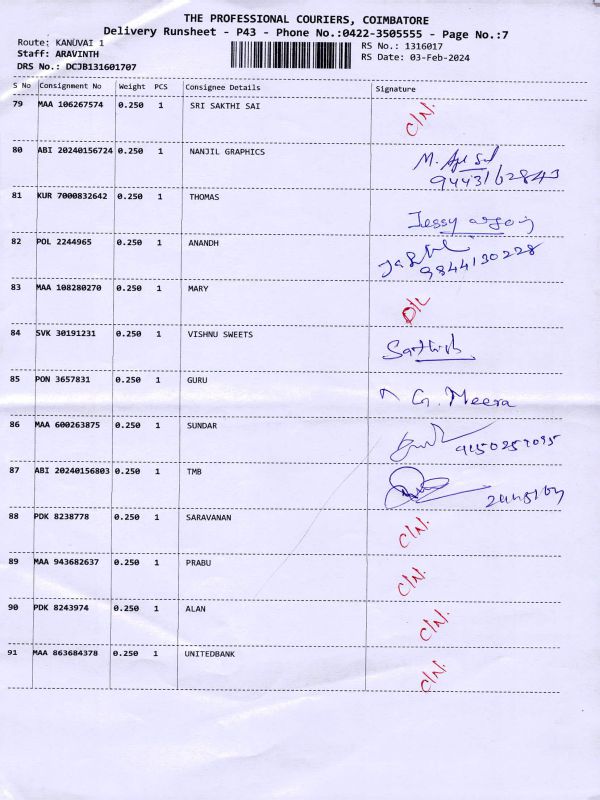 THE PROFESSIONAL COURIERS, COIMBATORE
Delivery Runsheet - P43 - Phone No.:0422-3505555 - Page No.:7
Route: KANUVAI 1
Staff: ARAVINTH
DRS No.: DCJB131601707
RS No.: 1316017
RS Date: 03-Feb-2024
S No Consignment No Weight PCS Consignee Details Signature
79 MAA 106267574 0.250 1 SRI SAKTHI SAI C/N.
80 ABI 20240156724 0.250 1 NANJIL GRAPHICS M.
9443162843
81 KUR 7000832642 0.250 1 THOMAS Jessy
82 POL 2244965 0.250 1 ANANDH
9844130228
83 MAA 108280270 0.250 1 MARY D/L
84 SVK 30191231 0.250 1 VISHNU SWEETS Sathish
85 PON 3657831 0.250 1 GURU G. Meera
86 MAA 600263875 0.250 1 SUNDAR
87 ABI 20240156803 0.250 1 TMB
88 PDK 8238778 0.250 1 SARAVANAN C/N.
89 MAA 943682637 0.250 1 PRABU C/N.
90 PDK 8243974 0.250 1 ALAN C/N.
91 MAA 863684378 0.250 1 UNITEDBANK C/N.